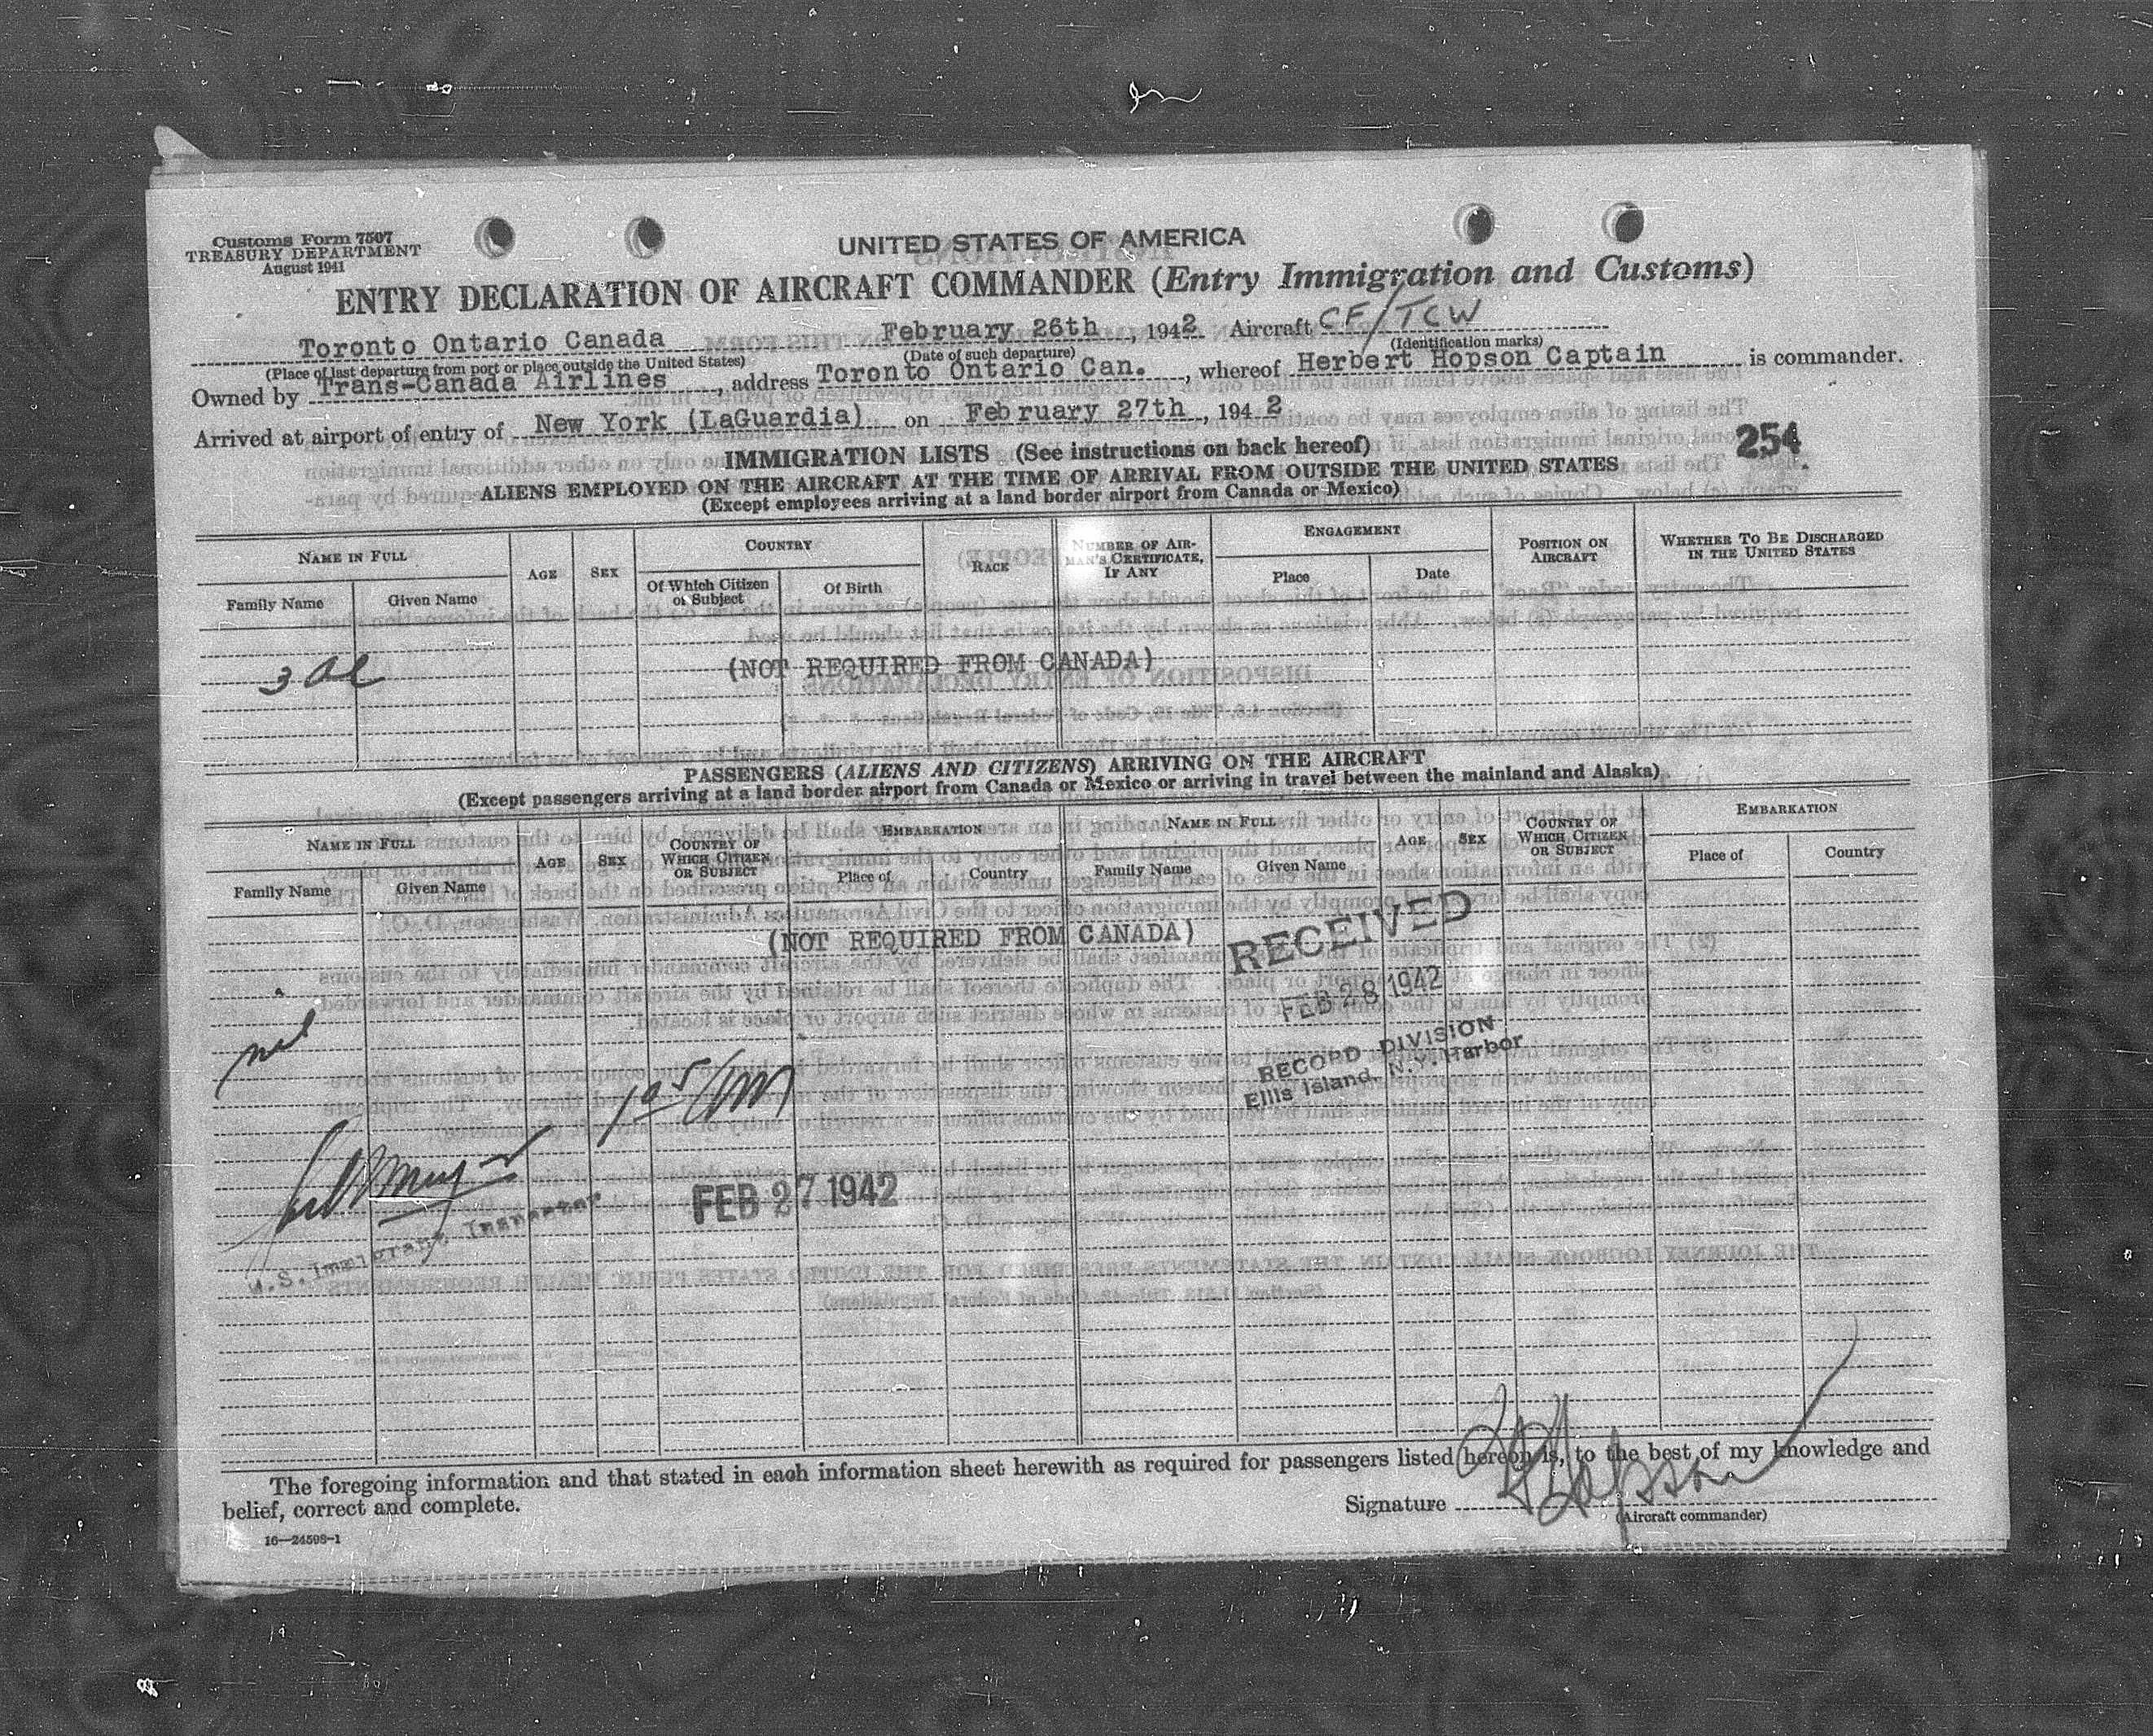 Customs Form 7507
TREASURY DEPARTMENT
August 1941
UNITED STATES OF AMERICA
ENTRY DECLARATION OF AIRCRAFT COMMANDER (Entry Immigration and Customs)
Toronto Ontario Canada February 26th, 1942 Aircraft CF/TCW
(Place of last departure from port or place outside the United States) (Date of such departure) (Identification marks)
Owned by Trans-Canada Airlines, address Toronto Ontario Can., whereof Herbert Hopson Captain is commander.
Arrived at airport of entry of New York (LaGuardia) on February 27th, 1942
254
IMMIGRATION LISTS (See instructions on back hereof)
ALIENS EMPLOYED ON THE AIRCRAFT AT THE TIME OF ARRIVAL FROM OUTSIDE THE UNITED STATES
(Except employees arriving at a land border airport from Canada or Mexico)
NAME IN FULL AGE SEX COUNTRY RACE NUMBER OF AIRMAN'S CERTIFICATE, IF ANY ENGAGEMENT POSITION ON AIRCRAFT WHETHER TO BE DISCHARGED IN THE UNITED STATES
Family Name Given Name Of Which Citizen or Subject Of Birth Place Date
3 al
(NOT REQUIRED FROM CANADA)
PASSENGERS (ALIENS AND CITIZENS) ARRIVING ON THE AIRCRAFT
(Except passengers arriving at a land border airport from Canada or Mexico or arriving in travel between the mainland and Alaska)
NAME IN FULL AGE SEX COUNTRY OF WHICH CITIZEN OR SUBJECT EMBARKATION NAME IN FULL AGE SEX COUNTRY OF WHICH CITIZEN OR SUBJECT EMBARKATION
Family Name Given Name Place of Country Family Name Given Name Place of Country
(NOT REQUIRED FROM CANADA)
RECEIVED
FEB 28 1942
RECORD DIVISION
Ellis Island, N.Y. Harbor
nil
FEB 27 1942
U.S. Immigrant Inspector
The foregoing information and that stated in each information sheet herewith as required for passengers listed hereon is, to the best of my knowledge and
belief, correct and complete.
Signature HHopson
(Aircraft commander)
16—24598-1